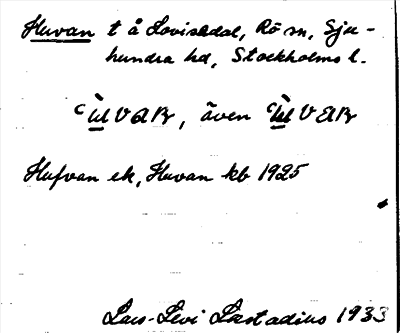 Huvan t å Lovisedal, Rö sn, Sju-
hundra hd, Stockholms l.
även
Hufvan ek, Huvan kb 1925
Lars-Levi Læstadius 1933